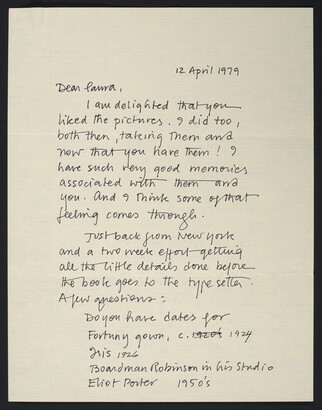 12 April 1979
Dear Laura,
I am delighted that you
liked the pictures. I did too,
both then, taking them and
now that you have them! I
have such very good memories
associated with them and
you. And I think some of that
feeling comes through.
Just back from New York
and a two week effort getting
all the little details done before
the book goes to the type setter.
A few questions:
Do you have dates for
Fortuny gown, c. 1920's 1924
Iris 1926
Boardman Robinson in his Studio
Eliot Porter 1950's